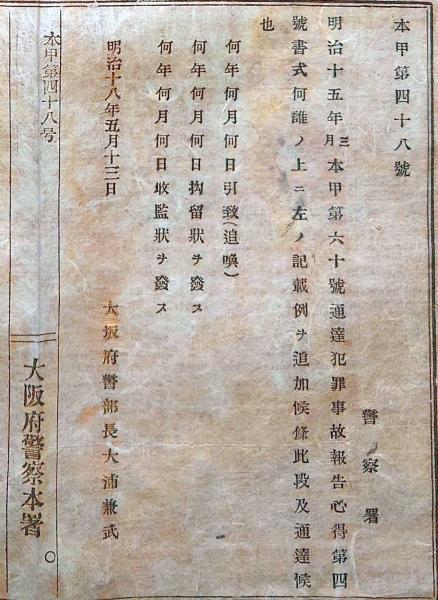 本甲第四十八號
警察署
明治十五年三月本甲第六十號通達犯罪事故報告心得第四
號書式何誰ノ上ニ左ノ記載例ヲ追加候條此段及通達候
也
何年何月何日引致(追喚)
何年何月何日拘留狀ヲ發ス
何年何月何日收監狀ヲ發ス
明治十八年五月十三日
大坂府警部長大浦兼武
本甲第四十八号
大阪府警察本署